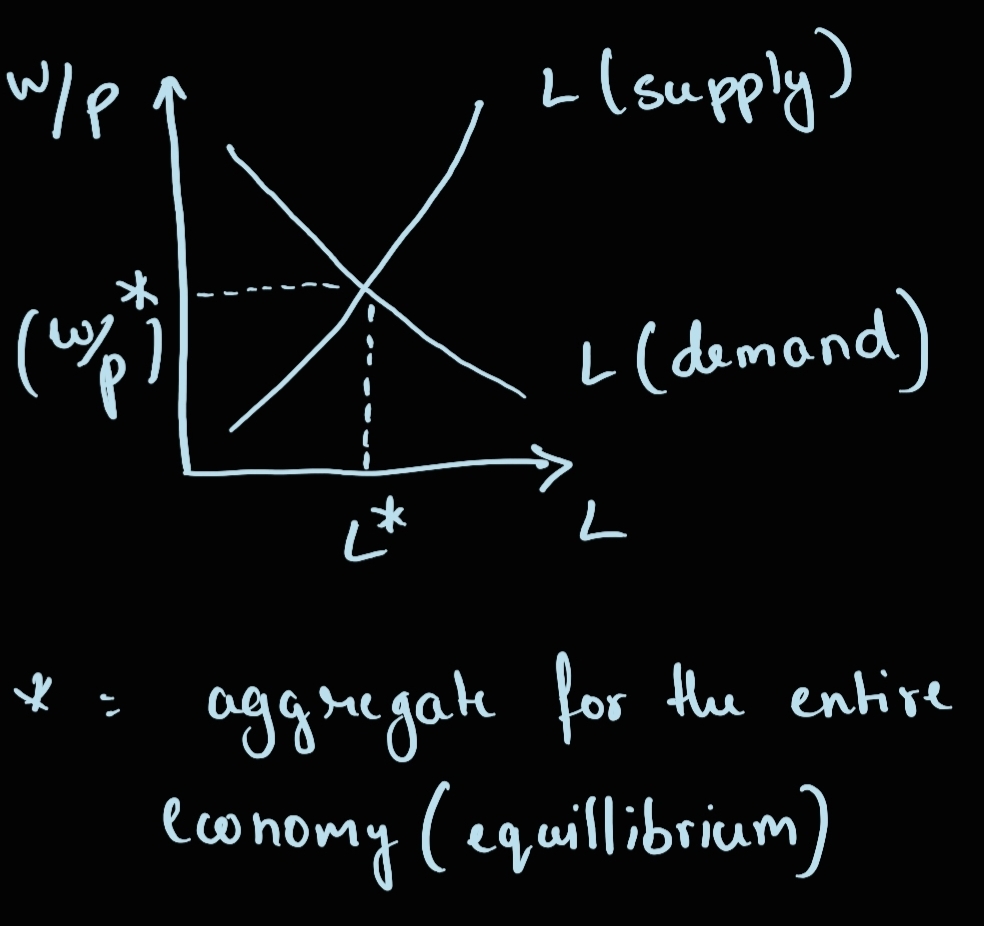 W/P
L (supply)
(W/P)*
L (demand)
L*
L
* = aggregate for the entire
economy (equillibrium)